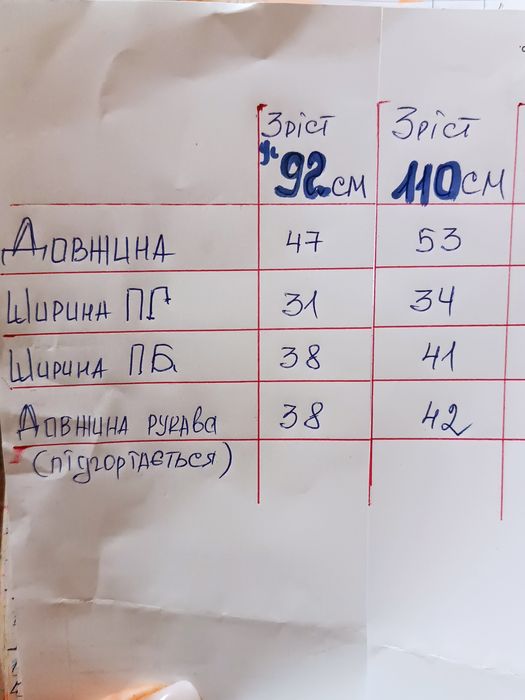 Зріст Зріст
92 см 110 см
Довжина 47 53
Ширина ПГ 31 34
Ширина ПБ 38 41
Довжина рукава 38 42
(підгортається)